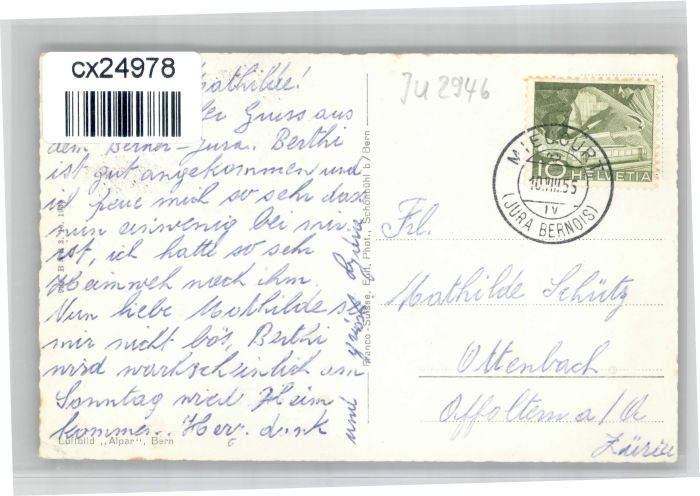 cx24978
Mathilde!
Gruss aus
dem Berner-Jura. Berthi
ist gut angekommen und
ich freue mich so sehr das
nun ein wenig bei mir
ist, ich hatte so sehr
Heimweh nach ihm.
Nun liebe Mathilde sei
mir nicht bös, Berthi
wird warkscheinlich am
Sonntag wied Heim
kommen. Herz. dank
und
grüsst
Luftbild „Alpar", Bern
Franco-Suisse, Edit. Phot., Schönbühl b/Bern
Ju 2946
10
HELVETIA
MIECOURT
10.VIII.55
IV
(JURA BERNOIS)
Frl.
Mathilde Schütz
Ottenbach
Affoltern a/A
Zürich